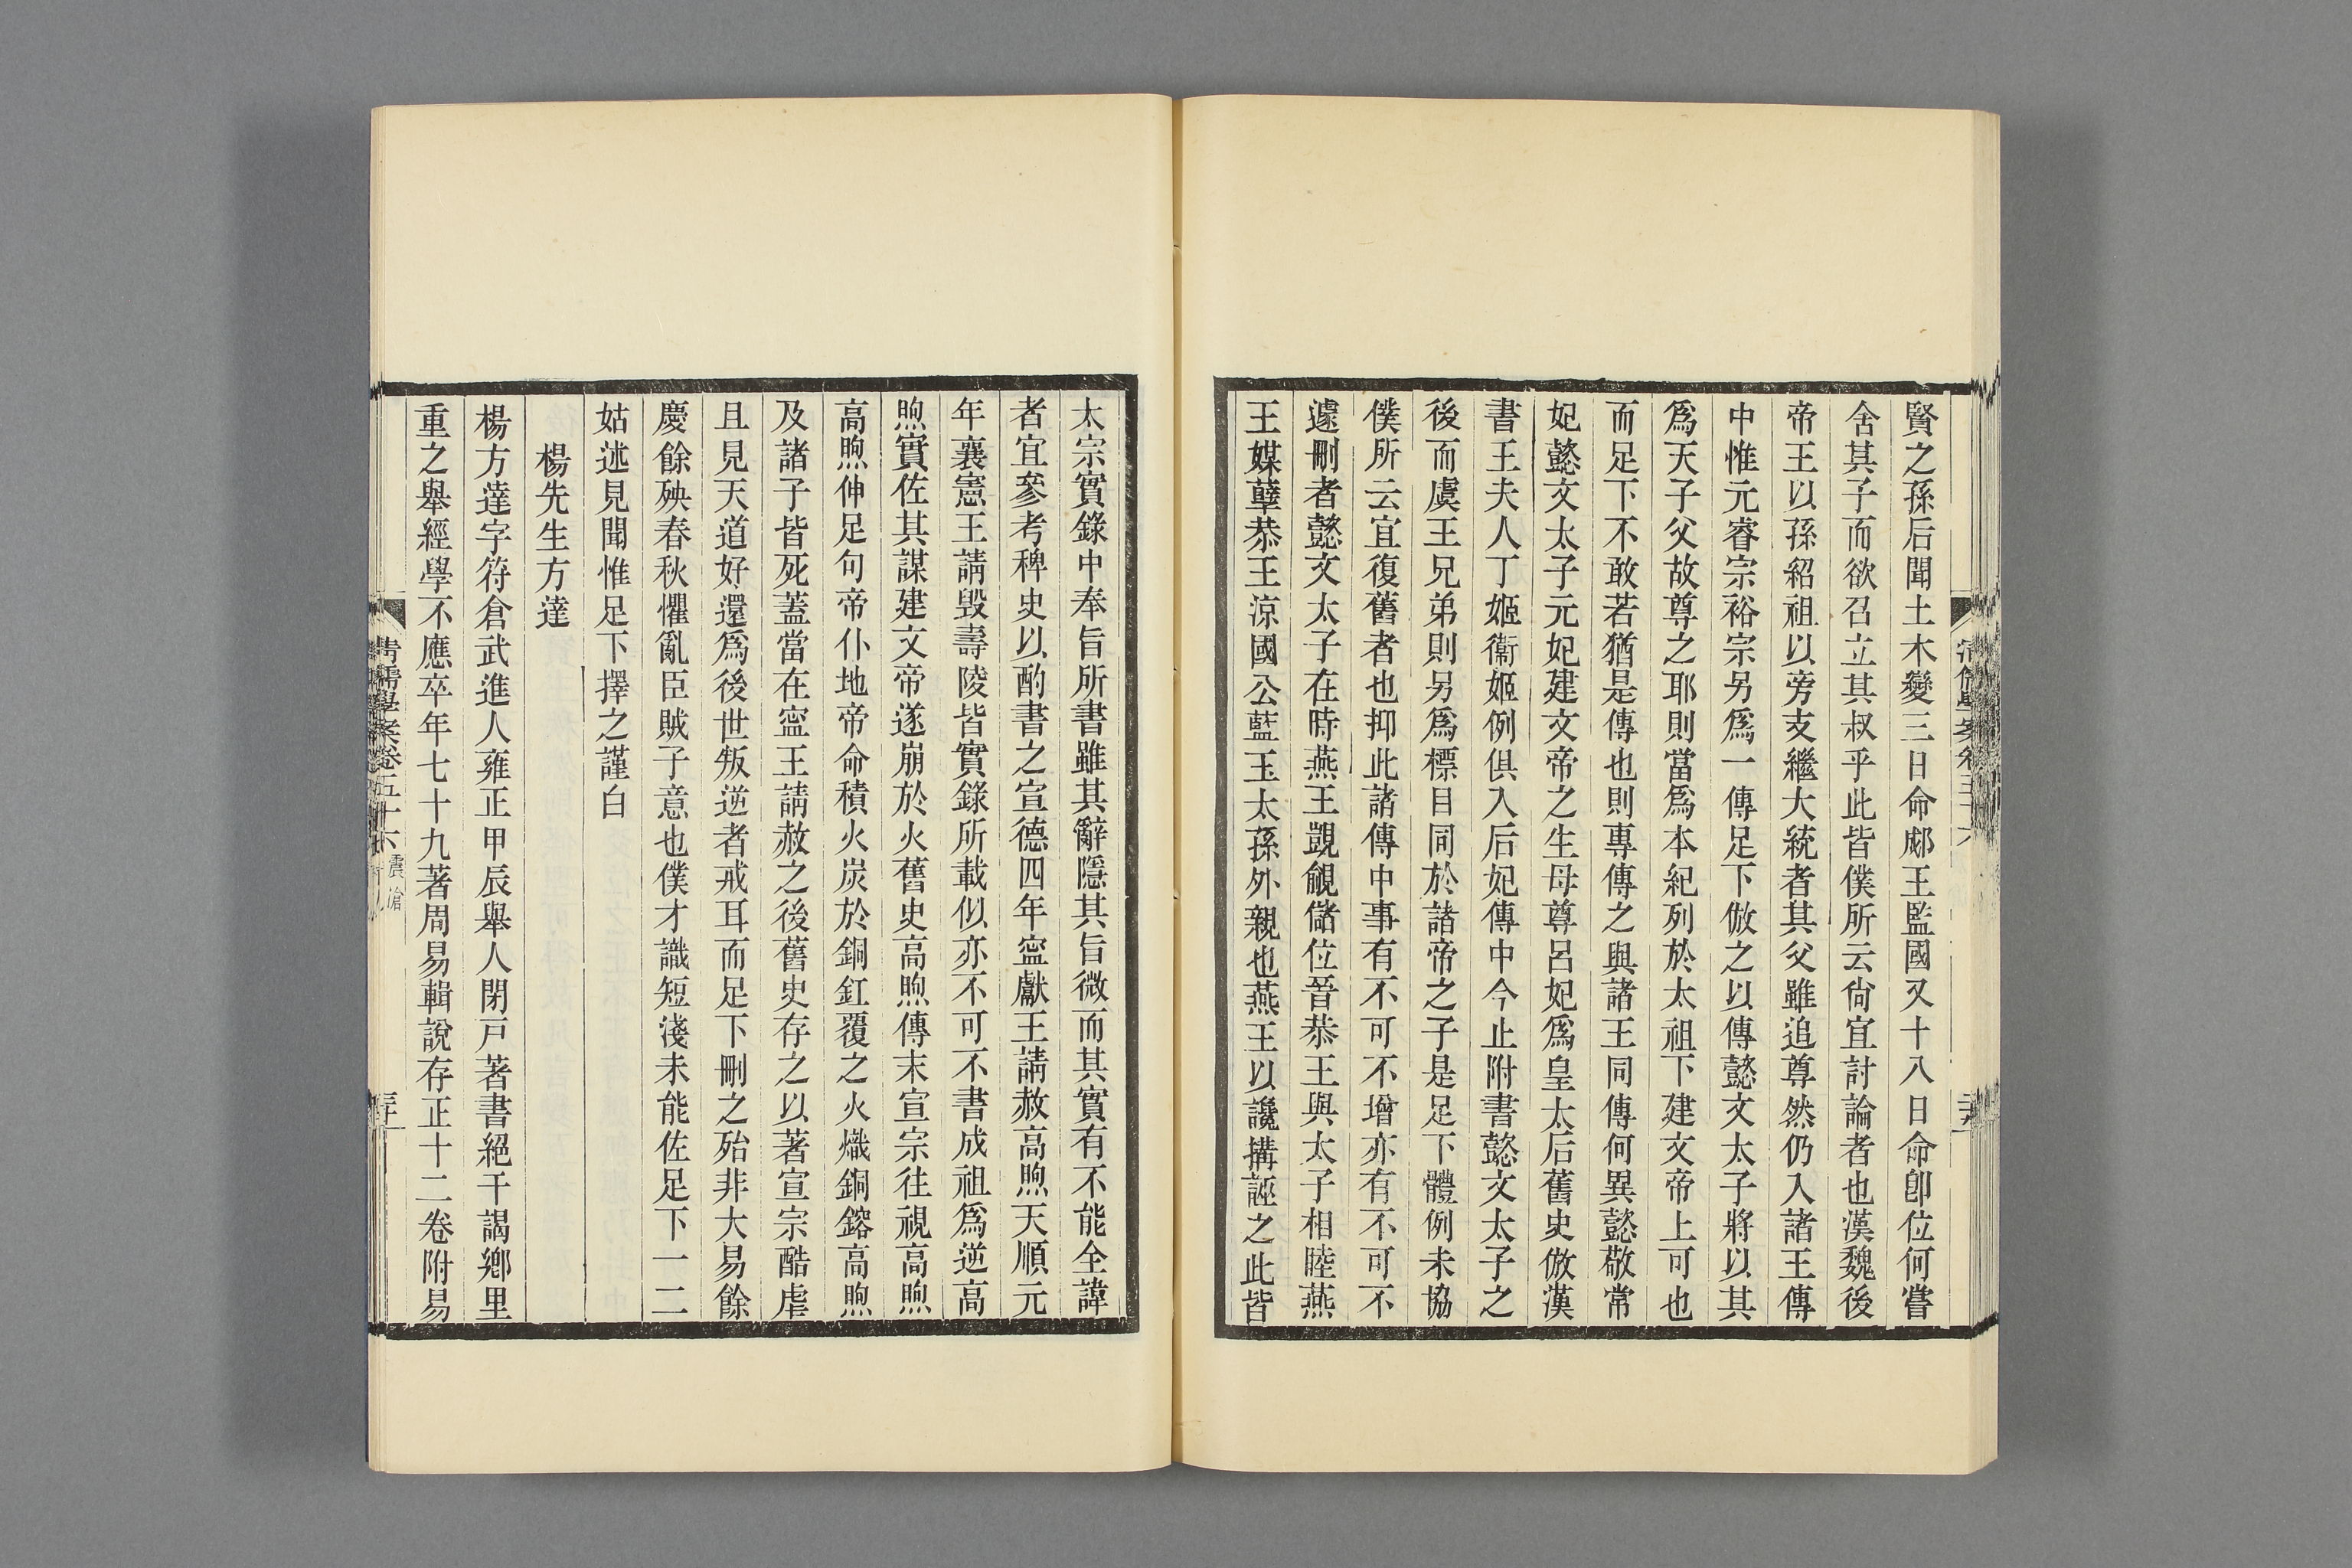 賢之孫后聞土木變三日命郕王監國又十八日命卽位何嘗
舍其子而欲召立其叔乎此皆僕所云尙宜討論者也漢魏後
帝王以孫紹祖以旁支繼大統者其父雖追尊然仍入諸王傳
中惟元睿宗裕宗另爲一傳足下倣之以傳懿文太子將以其
爲天子父故尊之耶則當爲本紀列於太祖下建文帝上可也
而足下不敢若猶是傳也則專傳之與諸王同傳何異懿敬常
妃懿文太子元妃建文帝之生母尊呂妃爲皇太后舊史倣漢
書王夫人丁姬衞姬例俱入后妃傳中今止附書懿文太子之
後而虞王兄弟則另爲標目同於諸帝之子是足下體例未協
僕所云宜復舊者也抑此諸傳中事有不可不增亦有不可不
遽刪者懿文太子在時燕王覬覦儲位晉恭王與太子相睦燕
王媒孽恭王涼國公藍玉太孫外親也燕王以讒搆誣之此皆
太宗實錄中奉旨所書雖其辭隱其旨微而其實有不能全諱
者宜參考稗史以酌書之宣德四年寍獻王請赦高煦天順元
年襄憲王請毀壽陵皆實錄所載似亦不可不書成祖爲逆高
煦實佐其謀建文帝遂崩於火舊史高煦傳末宣宗往視高煦
高煦伸足句帝仆地帝命積火炭於銅釭覆之火熾銅鎔高煦
及諸子皆死蓋當在寍王請赦之後舊史存之以著宣宗酷虐
且見天道好還爲後世叛逆者戒耳而足下刪之殆非大易餘
慶餘殃春秋懼亂臣賊子意也僕才識短淺未能佐足下一二
姑述見聞惟足下擇之謹白
楊先生方達
楊方達字符倉武進人雍正甲辰舉人閉戸著書絕干謁鄉里
重之舉經學不應卒年七十九著周易輯說存正十二卷附易
清儒學案卷五十六